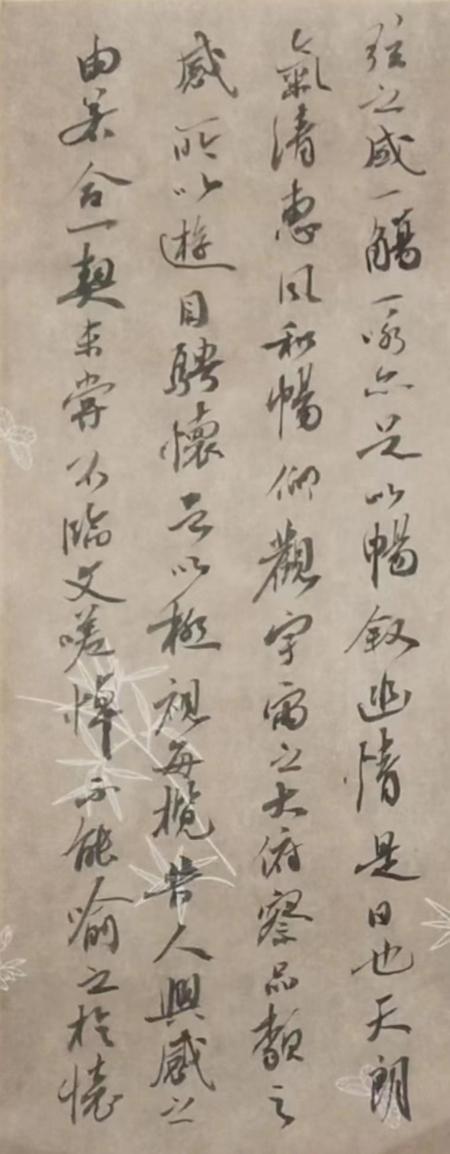 弦之盛一觴一詠亦足以暢敘幽情是日也天朗
氣清惠風和暢仰觀宇宙之大俯察品類之
盛所以遊目騁懷足以極視每攬昔人興感之
由若合一契未嘗不臨文嗟悼不能喻之於懷